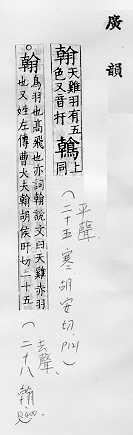 廣韻
翰天雞羽有五
色又音扞
鶾上
同
(平聲、
二十五寒 胡安切, P121)
○翰鳥羽也高飛也亦詞翰說文曰天雞赤羽
也又姓左傳曹大夫翰胡侯旰切二十五
(去聲、
二十八翰,